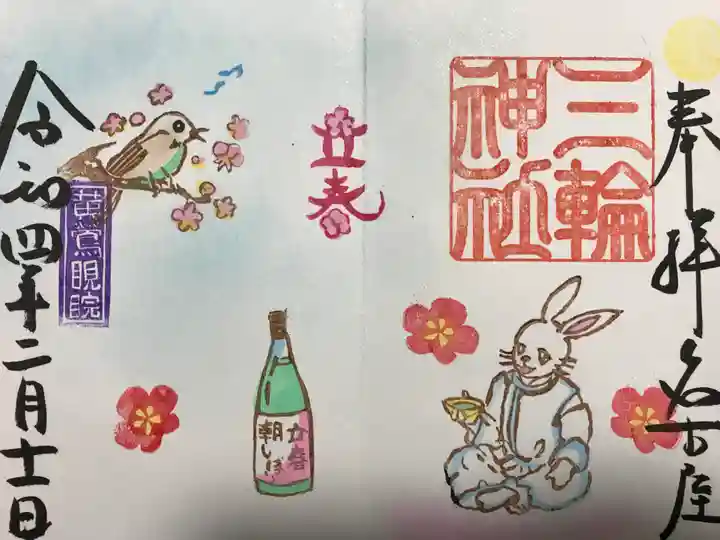 奉拝 名古屋
三輪
神社
立春
立春
朝しぼり
黄鶯睍睆
令和四年二月十一日